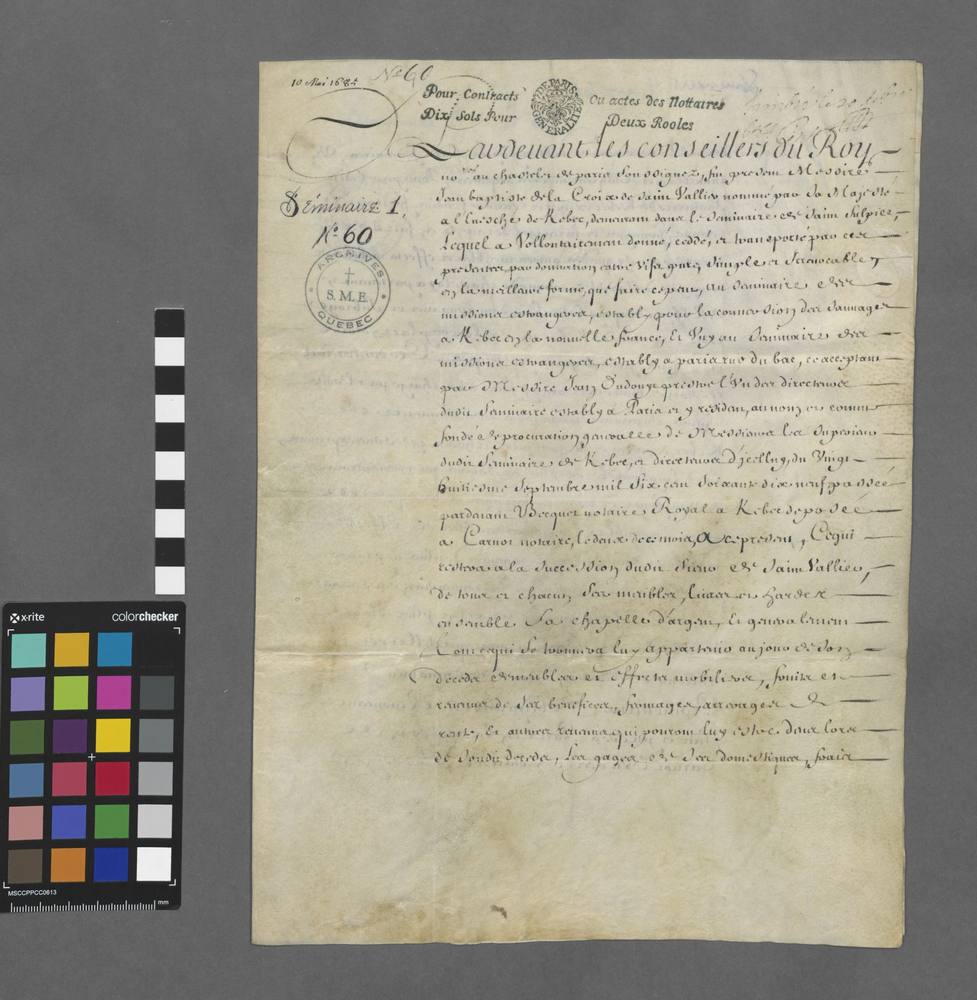 10 Mai 1685
N° 60
Pour Contracts
Dix Sols Pour
DE PARIS
GENERALITE
Ou actes des Nottaires
Deux Rooles
Pardevant les conseillers du Roy
nores au chastelet de paris soussignez, fut present Messire
Jean baptiste de la Croix de saint Vallier nommé par Sa Majesté
a l'Evesché de Kebec, demeurant dans le Seminaire de Saint Sulpice,
Lequel a Vollontairement donné, ceddé, et transporté par ces
presentes, par donnation entre vifs, pure, simple et irrevocable
en la meilleure forme, que faire ce peut, au seminaire des
missions estrangeres, estably pour la conversion des sauvages
a Kebec en la nouvelle france, Et Uny au Seminaire des
missions estrangeres, estably a paris rue du bac, ce acceptant
par Messire Jean Dudouyt prestre l'Un des directeurs
dudit Seminaire estably a Paris et y residant, au nom et comme
fondé de procuration generalle de Messieurs les Superieur
dudit Seminaire de Kebec, et directeurs d'jcelluy, du Vingt
huitiesme Septembre mil six cent soixante dix neuf passée
pardevant Becquet notaire Royal a Kebec deposée
a Carnot notaire, le deux de ce mois, A ce present, Ce qui
restera a la succession dudit Sieur de Saint Vallier,
de tous et chacuns ses meubles, linges et hardes
ensemble Sa chapelle d'argent, Et generalement
Tout ce qui se trouvera luy appartenir au jour de son
deceds de meubles et effects mobiliers, fruits et
revenus de ses benefices, fermages, arrerages de
rente, Et autres revenus qui pourront luy estre deus lors
de sondit deceds, Les gages de ses domestiques, frais
Séminaire 1,
N° 60
ARCHIVES
S.M.E.
QUEBEC
x-rite
colorchecker
MSCCPPCC0613
mm